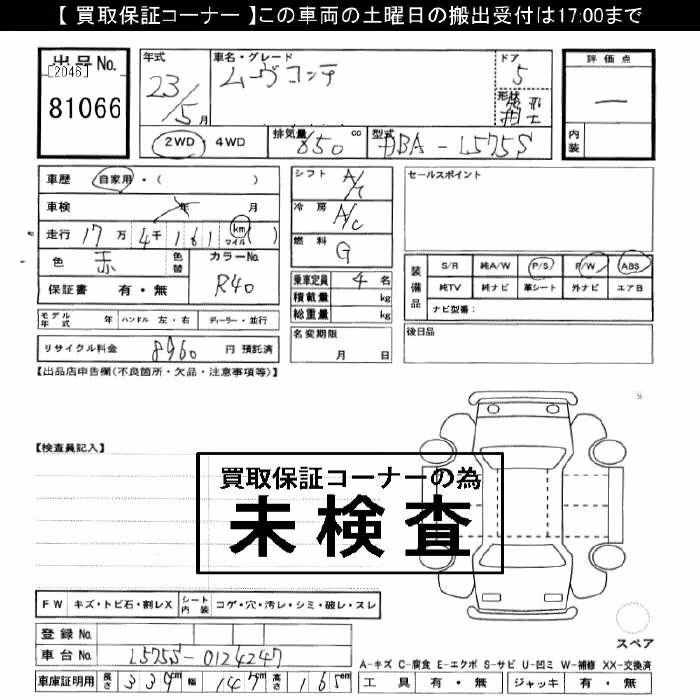 【 買取保証コーナー 】この車両の土曜日の搬出受付は17:00まで
出品No.
[2046]
81066
年式
23/5月
車名・グレード
ムーヴコンテ
ドア
5
形状
評価点
一
内装
2WD・4WD
排気量 650 cc
型式 DBA-L575S
車歴 自家用・( )
車検 年 月
走行 17万4千161 km マイル ( )
色 赤 色替
カラーNo. R40
保証書 有・無
シフト A/T
冷房 A/C
燃料 G
乗車定員 4名
積載量 kg
総重量 kg
セールスポイント
装備品
S/R 純A/W P/S P/W ABS
純TV 純ナビ 革シート 外ナビ エアB
ナビ型番:
モデル年式 年 ハンドル 左・右 ディーラー・並行
名変期限 月 日
後日品
リサイクル料金 8960 円 預託済
【出品店申告欄(不良箇所・欠品・注意事項等)】
【検査員記入】
買取保証コーナーの為
未検査
FW キズ・トビ石・割レX シート内装 コゲ・穴・汚レ・シミ・破レ・スレ
登録No.
車台No. L575S-0124247
車庫証明用 長さ 339 幅 147 高さ 165cm
スペア
A-キズ C-腐食 E-エクボ S-サビ U-凹ミ W-補修 XX-交換済
工具 有・無 ジャッキ 有・無